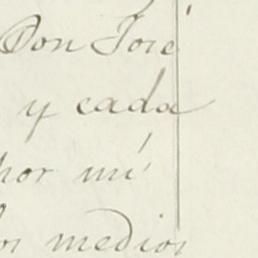 Don José
y cada
por mi
los medios